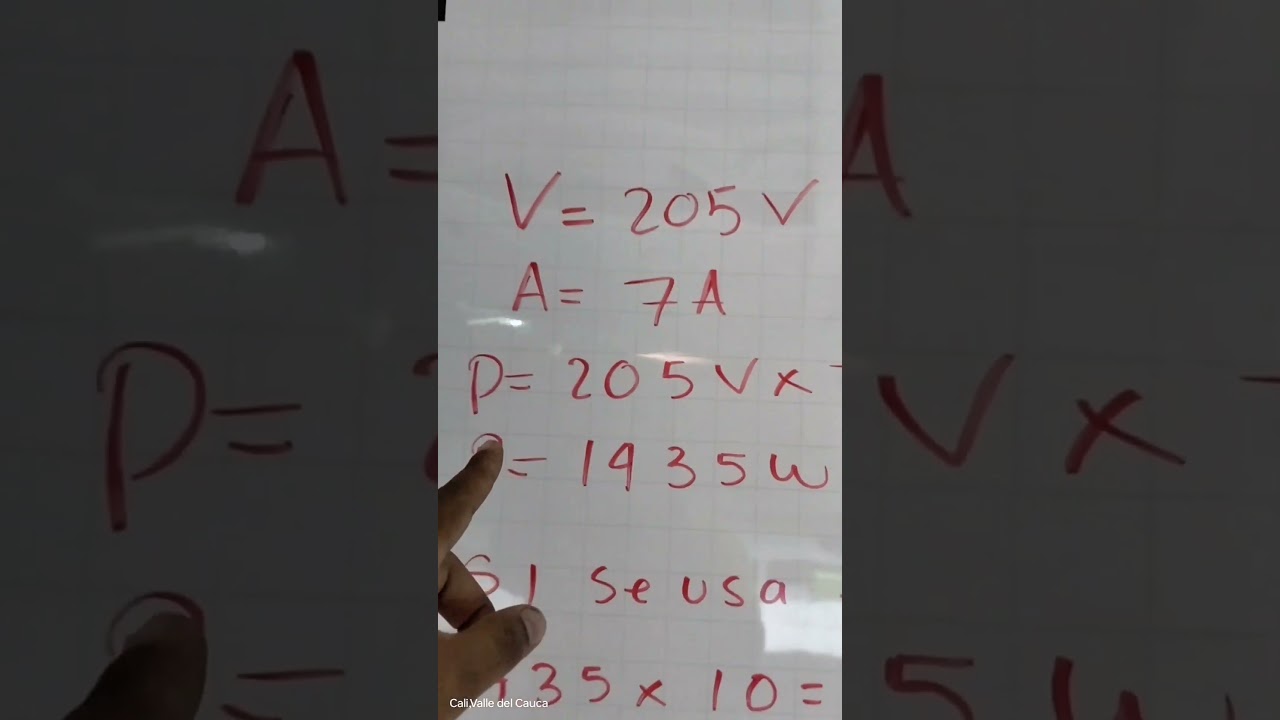 V = 205 V
A = 7A
P = 205 V x
P = 1435 W
Si se usa
435 x 10 =
Cali,Valle del Cauca